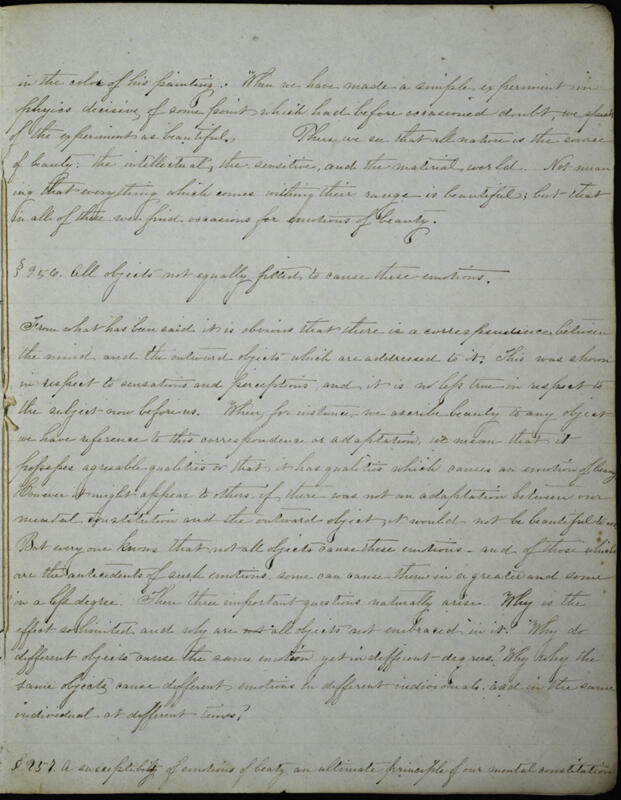 in the color of his painting. When we have made a simple experiment in
physics decisive, of some point which had before occasioned doubt, we speak
of the experiment as beautiful. Thus we see that all nature is the source
of beauty; the intellectual, the sensitive, and the material world. Not mean
ing that everything which comes withing their range is beautiful; but that
in all of these we find occasions for emotions of beauty.
§ 256. All objects not equally fitted to cause these emotions.
From what has been said it is obvious that there is a correspondence between
the mind and the outward objects which are addressed to it. This was shown
in respect to sensations and perceptions and it is no less true in respect to
the subject now before us. When, for instance, we ascribe beauty to any object
we have reference to this correspondence or adaptation, we mean that it
possesses agreable qualities or that it has qualities which causes an emotion of beauty
However it might appear to others if there was not an adaptation between our
mental constitution and the outward object it would not be beautiful to us
But every one knows that not all objects cause these emotions - and of those which
are the antecedents of such emotions, some can cause them in a greater and some
in a less degree. Then three important questions naturally arise. Why is the
effect so limited and why are not all objects not embraced in it. Why do
different objects cause the same emotion yet in different degrees? Why why the
same objects cause different emotions in different individuals; and in the same
individual at different times?
§ 257. A susceptibility of emotions of beaty an ultimate principle of our mental constitution